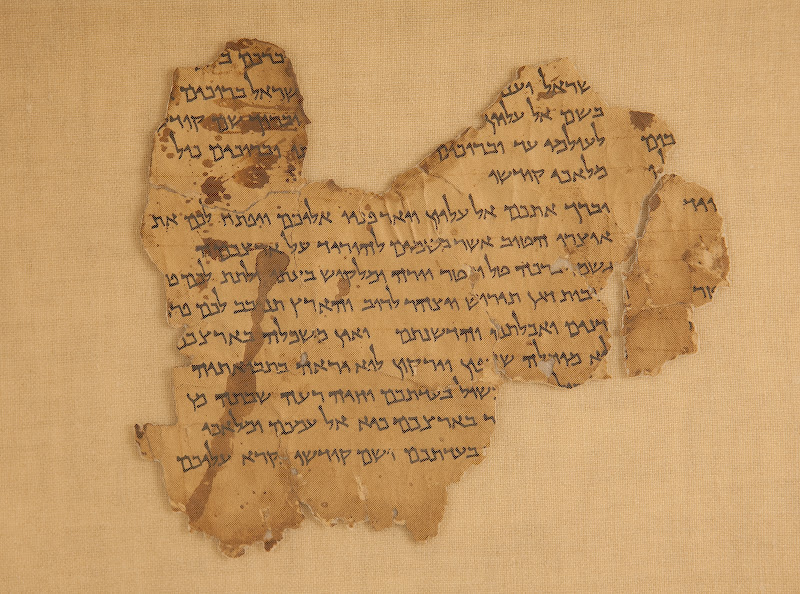 וברכם
שראל וענ שראל ברוכים
בשם אל עליון וברוך שם קודש
לעולמי עד וברוכים וברוכים כול
מלאכי קודשו
יברך אתכם אל עליון ויאר פניו אליכם ויפתח לכם את
אוצרו הטוב אשר בשמים להוריד על ארצכם
גשמי ברכה טל ומטר יורה ומלקוש בעתו ולתת לכם
תנובות דגן תירוש ויצהר לרוב והארץ תנובב לכם פרי
דנים ואכלתם והדשנתם ואין משכלה בארצכם
לא מוחלה שדפון וירקון לוא יראה בתבואתיה
שול בעדתכם וחיה רעה שבתה מן
ר בארצכם כיא אל עמכם ומלאכי
בעדתכם ושם קודשו נקרא עליכם